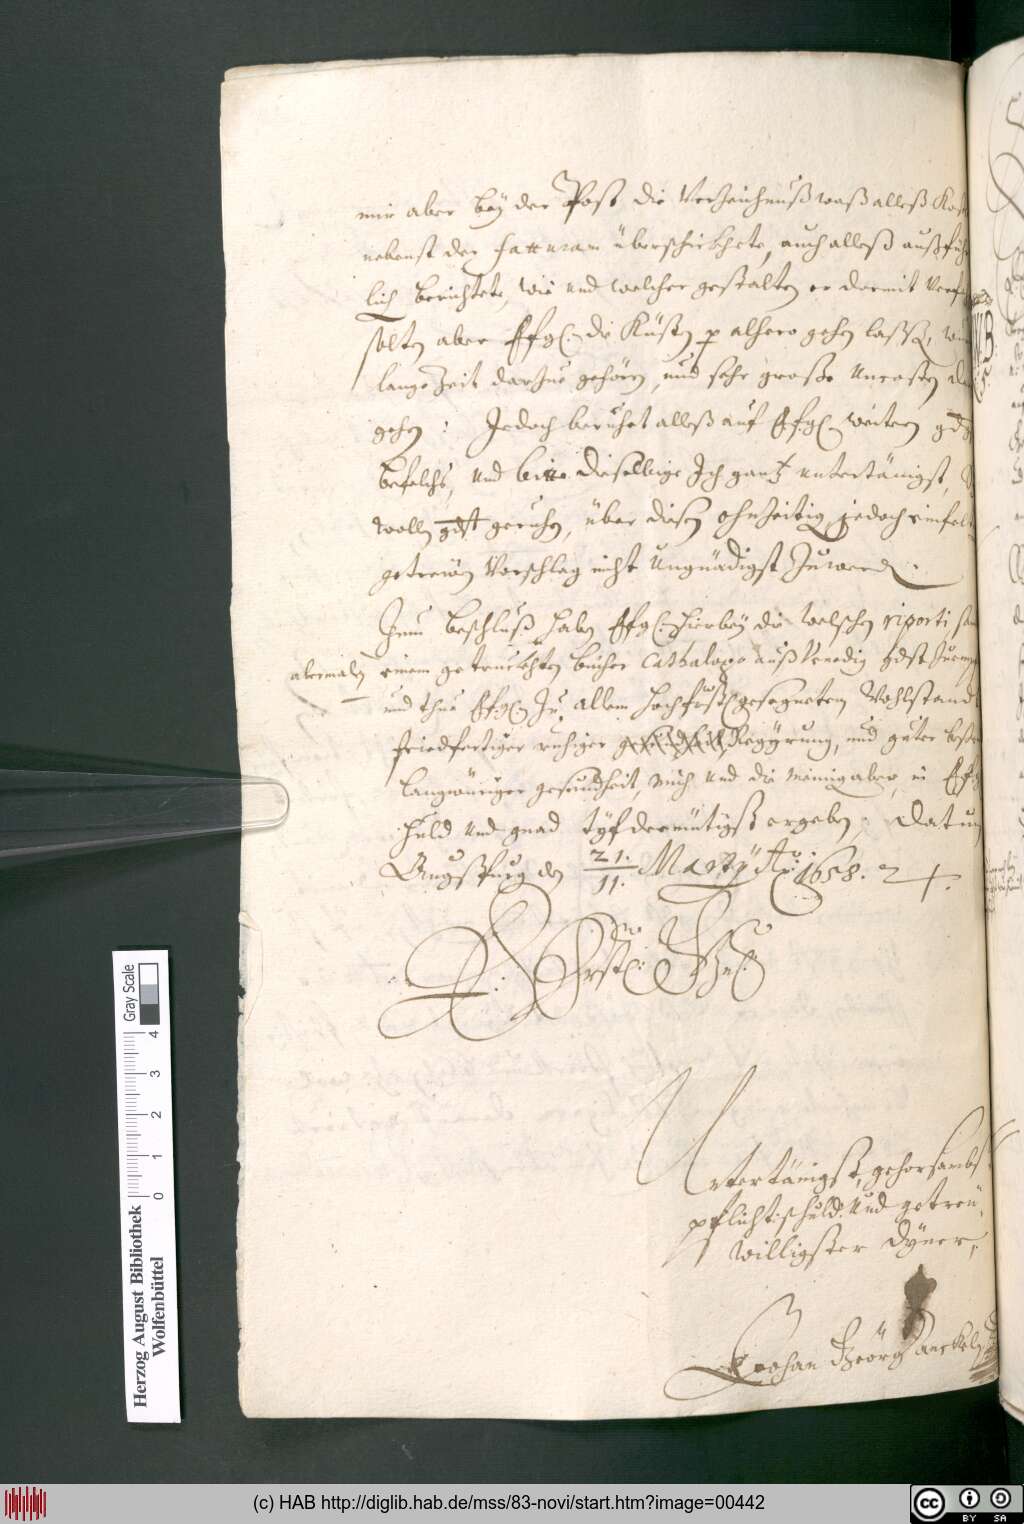 mir aber beÿ der Post die Verzeichnuß waß alleß Kost
nebenst der fatturam überschickhete, auch alleß außfüh
lich berichtete, wie und welcher gestalten er darmit
solten aber E fg. die Küsten p alhero gehen lassen,
lange Zeit darzue gehören, und sehr große Uncosten
gehen: Jedoch beruhet alleß auf E fg. weitern
befelch, und bitte dieselbige Ich gantz untertänigst,
wollen gdst geruhen, über disen ohnzeitig jedoch einfelt
getrewen Vorschlag nicht Ungnädigst zuwerden.
Zum beschluß haben E fg. hierbeÿ die welschen riporti
abermalen einem getruckhten bücher Cathalogo auß Venedig gdst
und thue E fg. Zu allem hochfürstl gesegneten Wohlstand
friedfertiger ruhiger Regÿrung, und guter
langwüriger gesundheit, mich und die meinig aber, in E fg
huld und gnad tÿf demütigst ergeben, Datum
Augspurg den 21./11. Martÿ Ao: 1658.
E: Fürstl: Gn:
Untertänigst, gehorsambst
pflichtschuld. und getreu
willigster dÿner,
Johan Geörg Anckel
Gray Scale
0 1 2 3 4
Herzog August Bibliothek
Wolfenbüttel
(c) HAB http://diglib.hab.de/mss/83-novi/start.htm?image=00442
cc BY SA